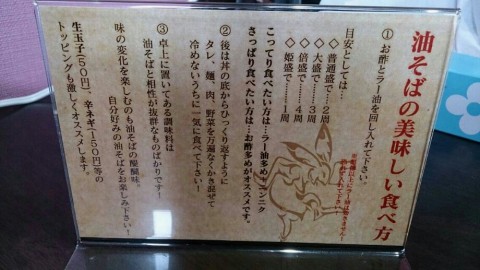 油そばの美味しい食べ方
①お酢とラー油を回し入れて下さい。
目安としては…
◇普通盛で…2周
◇大盛で……3周
◇倍盛で……4周
◇姫盛で……1周
こってり食べたい方は…ラー油多め+ニンニク
さっぱり食べたい方は…お酢多めがオススメです。
②後は丼の底からひっくり返すように
タレ、麺、肉、野菜を万遍なくかき混ぜて
冷めないうちに一気に食べて下さい!
③卓上に置いてある調味料は
油そばと相性が抜群なものばかりです!
味の変化を楽しむのも油そばの醍醐味。
自分好みの油そばをお楽しみ下さい!
生玉子(50円)辛ネギ(150円)等の
トッピングも激しくオススメします。